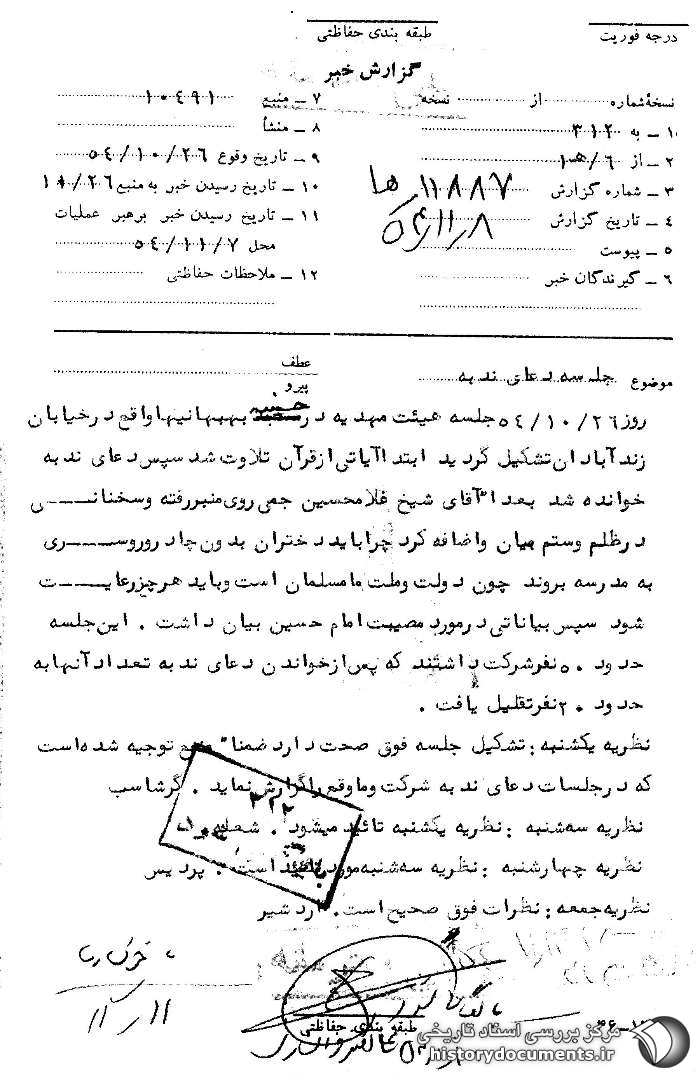 درجه فوریت
طبقه بندی حفاظتی
گزارش خبر
نسخهٔ شماره از نسخه
۱ – به ۳۱۲
۲ – از ۶/ﻫ۱
۳ – شماره گزارش ۱۱۸۸۷
۴ – تاریخ گزارش ۵۴/۱۱/۸
۵ – پیوست
۶ – گیرندگان خبر
۷ – منبع ۱۰۴۹۱
۸ – منشأ
۹ – تاریخ وقوع ۵۴/۱۰/۲۶
۱۰ – تاریخ رسیدن خبر به منبع ۱۰/۲۶
۱۱ – تاریخ رسیدن خبر برهبر عملیات
محل ۵۴/۱۱/۷
۱۲ – ملاحظات حفاظتی
موضوع جلسه دعای ندبه
عطف
پیرو
روز ۵۴/۱۰/۲۶ جلسه هیئت مهدیه در حسینیه بهبهانیها واقع در خیابان
زند آبادان تشکیل گردید ابتدا آیاتی از قرآن تلاوت شد سپس دعای ندبه
خوانده شد بعداً آقای شیخ غلامحسین جمی روی منبر رفته و سخنانی
در ظلم وستم میان واضافه کرد چرا باید دختران بدون چادر وروسری
به مدرسه بروند چون دولت وملت ما مسلمان است وباید هر چیز رعایت
شود سپس بیاناتی در مورد مصیبت امام حسین بیان داشت . این جلسه
حدود ۵۰ نفر شرکت داشتند که پس از خواندن دعای ندبه تعداد آنها به
حدود ۲۰ نفر تقلیل یافت .
نظریه یکشنبه : تشکیل جلسه فوق صحت دارد ضمناً منبع توجیه شده است
که در جلسات دعای ندبه شرکت وماوقع راگزارش نماید . گرشاسب
نظریه سه شنبه : نظریه یکشنبه تائید میشود . شعله
نظریه چهارشنبه : نظریه سه شنبه مورد تائید است . پردیس
نظریه جمعه : نظرات فوق صحیح است. اردشیر
۲۲۲
طبقه بندی حفاظتی
مرکز بررسی اسناد تاریخی
historydocuments.ir